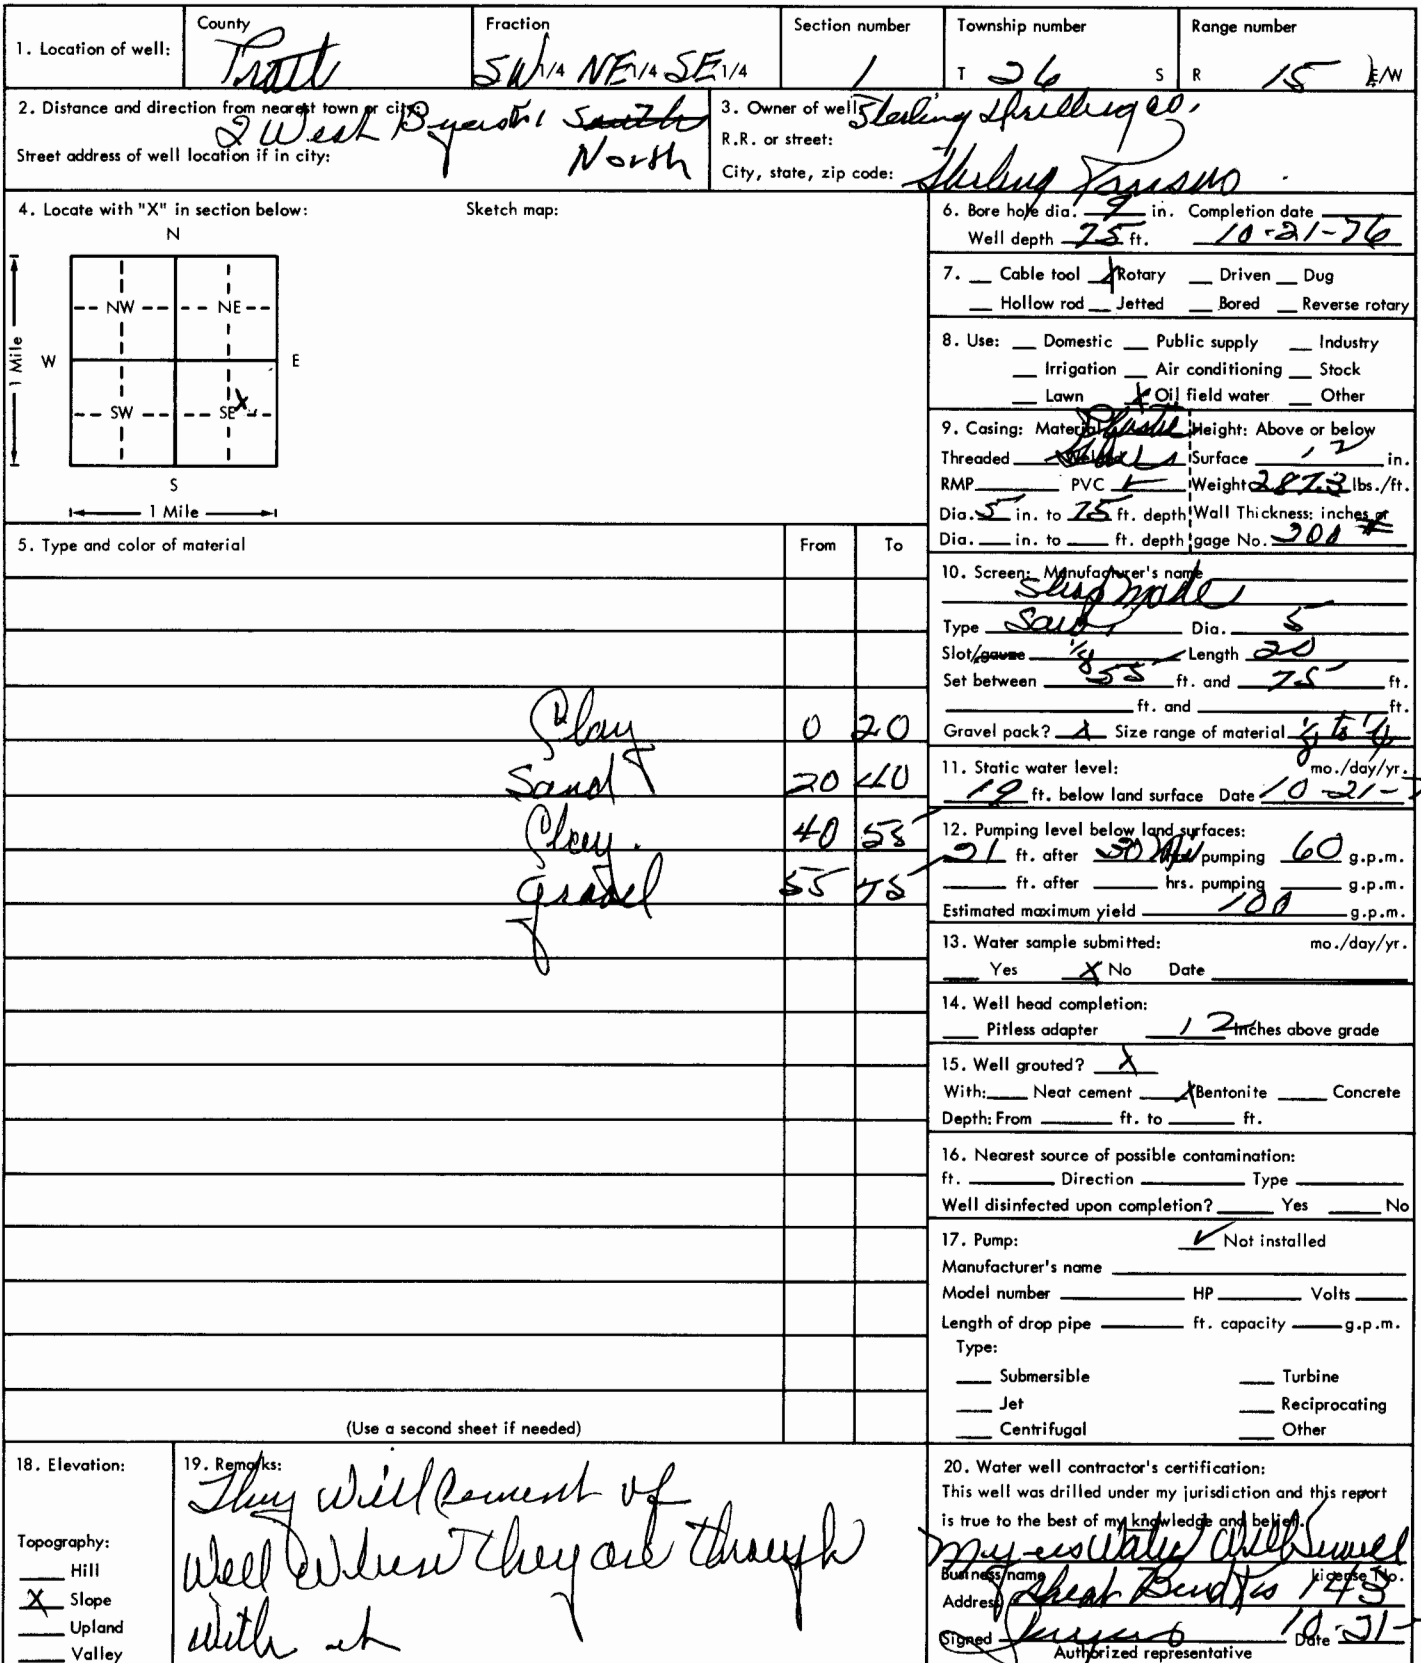 1. Location of well:
County
Pratt
Fraction
SW 1/4 NE 1/4 SE 1/4
Section number
1
Township number
T 26 S
Range number
R 15 E/W
2. Distance and direction from nearest town or city:
2 West Byers 1 South
North
Street address of well location if in city:
3. Owner of well: Sterling Drilling Co.
R.R. or street:
City, state, zip code: Sterling Kansas
4. Locate with "X" in section below:
Sketch map:
N
NW NE
W E
1 Mile
SW SE X
S
1 Mile
5. Type and color of material From To
Clay 0 20
Sand 20 40
Clay. 40 55
gravel 55 75
(Use a second sheet if needed)
6. Bore hole dia. 9 in. Completion date
Well depth 75 ft. 10-21-76
7. Cable tool X Rotary Driven Dug
Hollow rod Jetted Bored Reverse rotary
8. Use: Domestic Public supply Industry
Irrigation Air conditioning Stock
Lawn X Oil field water Other
9. Casing: Material Plastic Height: Above or below
Threaded Surface 12 in.
RMP PVC ✓ Weight 287.3 lbs./ft.
Dia. 5 in. to 75 ft. depth Wall Thickness: inches or
Dia. in. to ft. depth gage No. 200
10. Screen: Manufacturer's name
Shop made
Type Saw Dia. 5
Slot/gauze 1/8 Length 20
Set between 55 ft. and 75 ft.
ft. and ft.
Gravel pack? X Size range of material 1/8 to 1/4
11. Static water level: mo./day/yr.
19 ft. below land surface Date 10-21-
12. Pumping level below land surfaces:
21 ft. after 30 pumping 60 g.p.m.
ft. after hrs. pumping g.p.m.
Estimated maximum yield 100 g.p.m.
13. Water sample submitted: mo./day/yr.
Yes X No Date
14. Well head completion:
Pitless adapter 12 inches above grade
15. Well grouted? X
With: Neat cement X Bentonite Concrete
Depth: From ft. to ft.
16. Nearest source of possible contamination:
ft. Direction Type
Well disinfected upon completion? Yes No
17. Pump: ✓ Not installed
Manufacturer's name
Model number HP Volts
Length of drop pipe ft. capacity g.p.m.
Type:
Submersible Turbine
Jet Reciprocating
Centrifugal Other
18. Elevation:
Topography:
Hill
X Slope
Upland
Valley
19. Remarks:
They Will Cement of
Well When they are through
with it
20. Water well contractor's certification:
This well was drilled under my jurisdiction and this report
is true to the best of my knowledge and belief.
Myers Water Well
Business name License No.
Address Great Bend Ks 143
Signed Myers Date 10-21-
Authorized representative